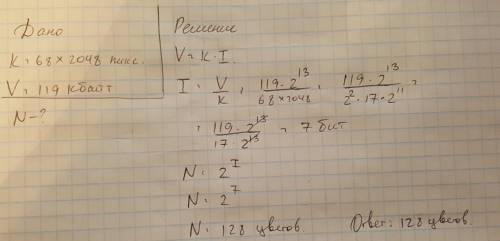 Дано
K = 68 × 2048 пикс.
V = 119 Кбайт
N – ?
Решение
V = K · I.
I = V/K = 119 · 2^13 / 68 × 2048 = 119 · 2^13 / 2^2 · 17 · 2^11 =
= 119 · 2^13 / 17 · 2^13 = 7 бит
N = 2^I
N = 2^7
N = 128 цветов. Ответ: 128 цветов.